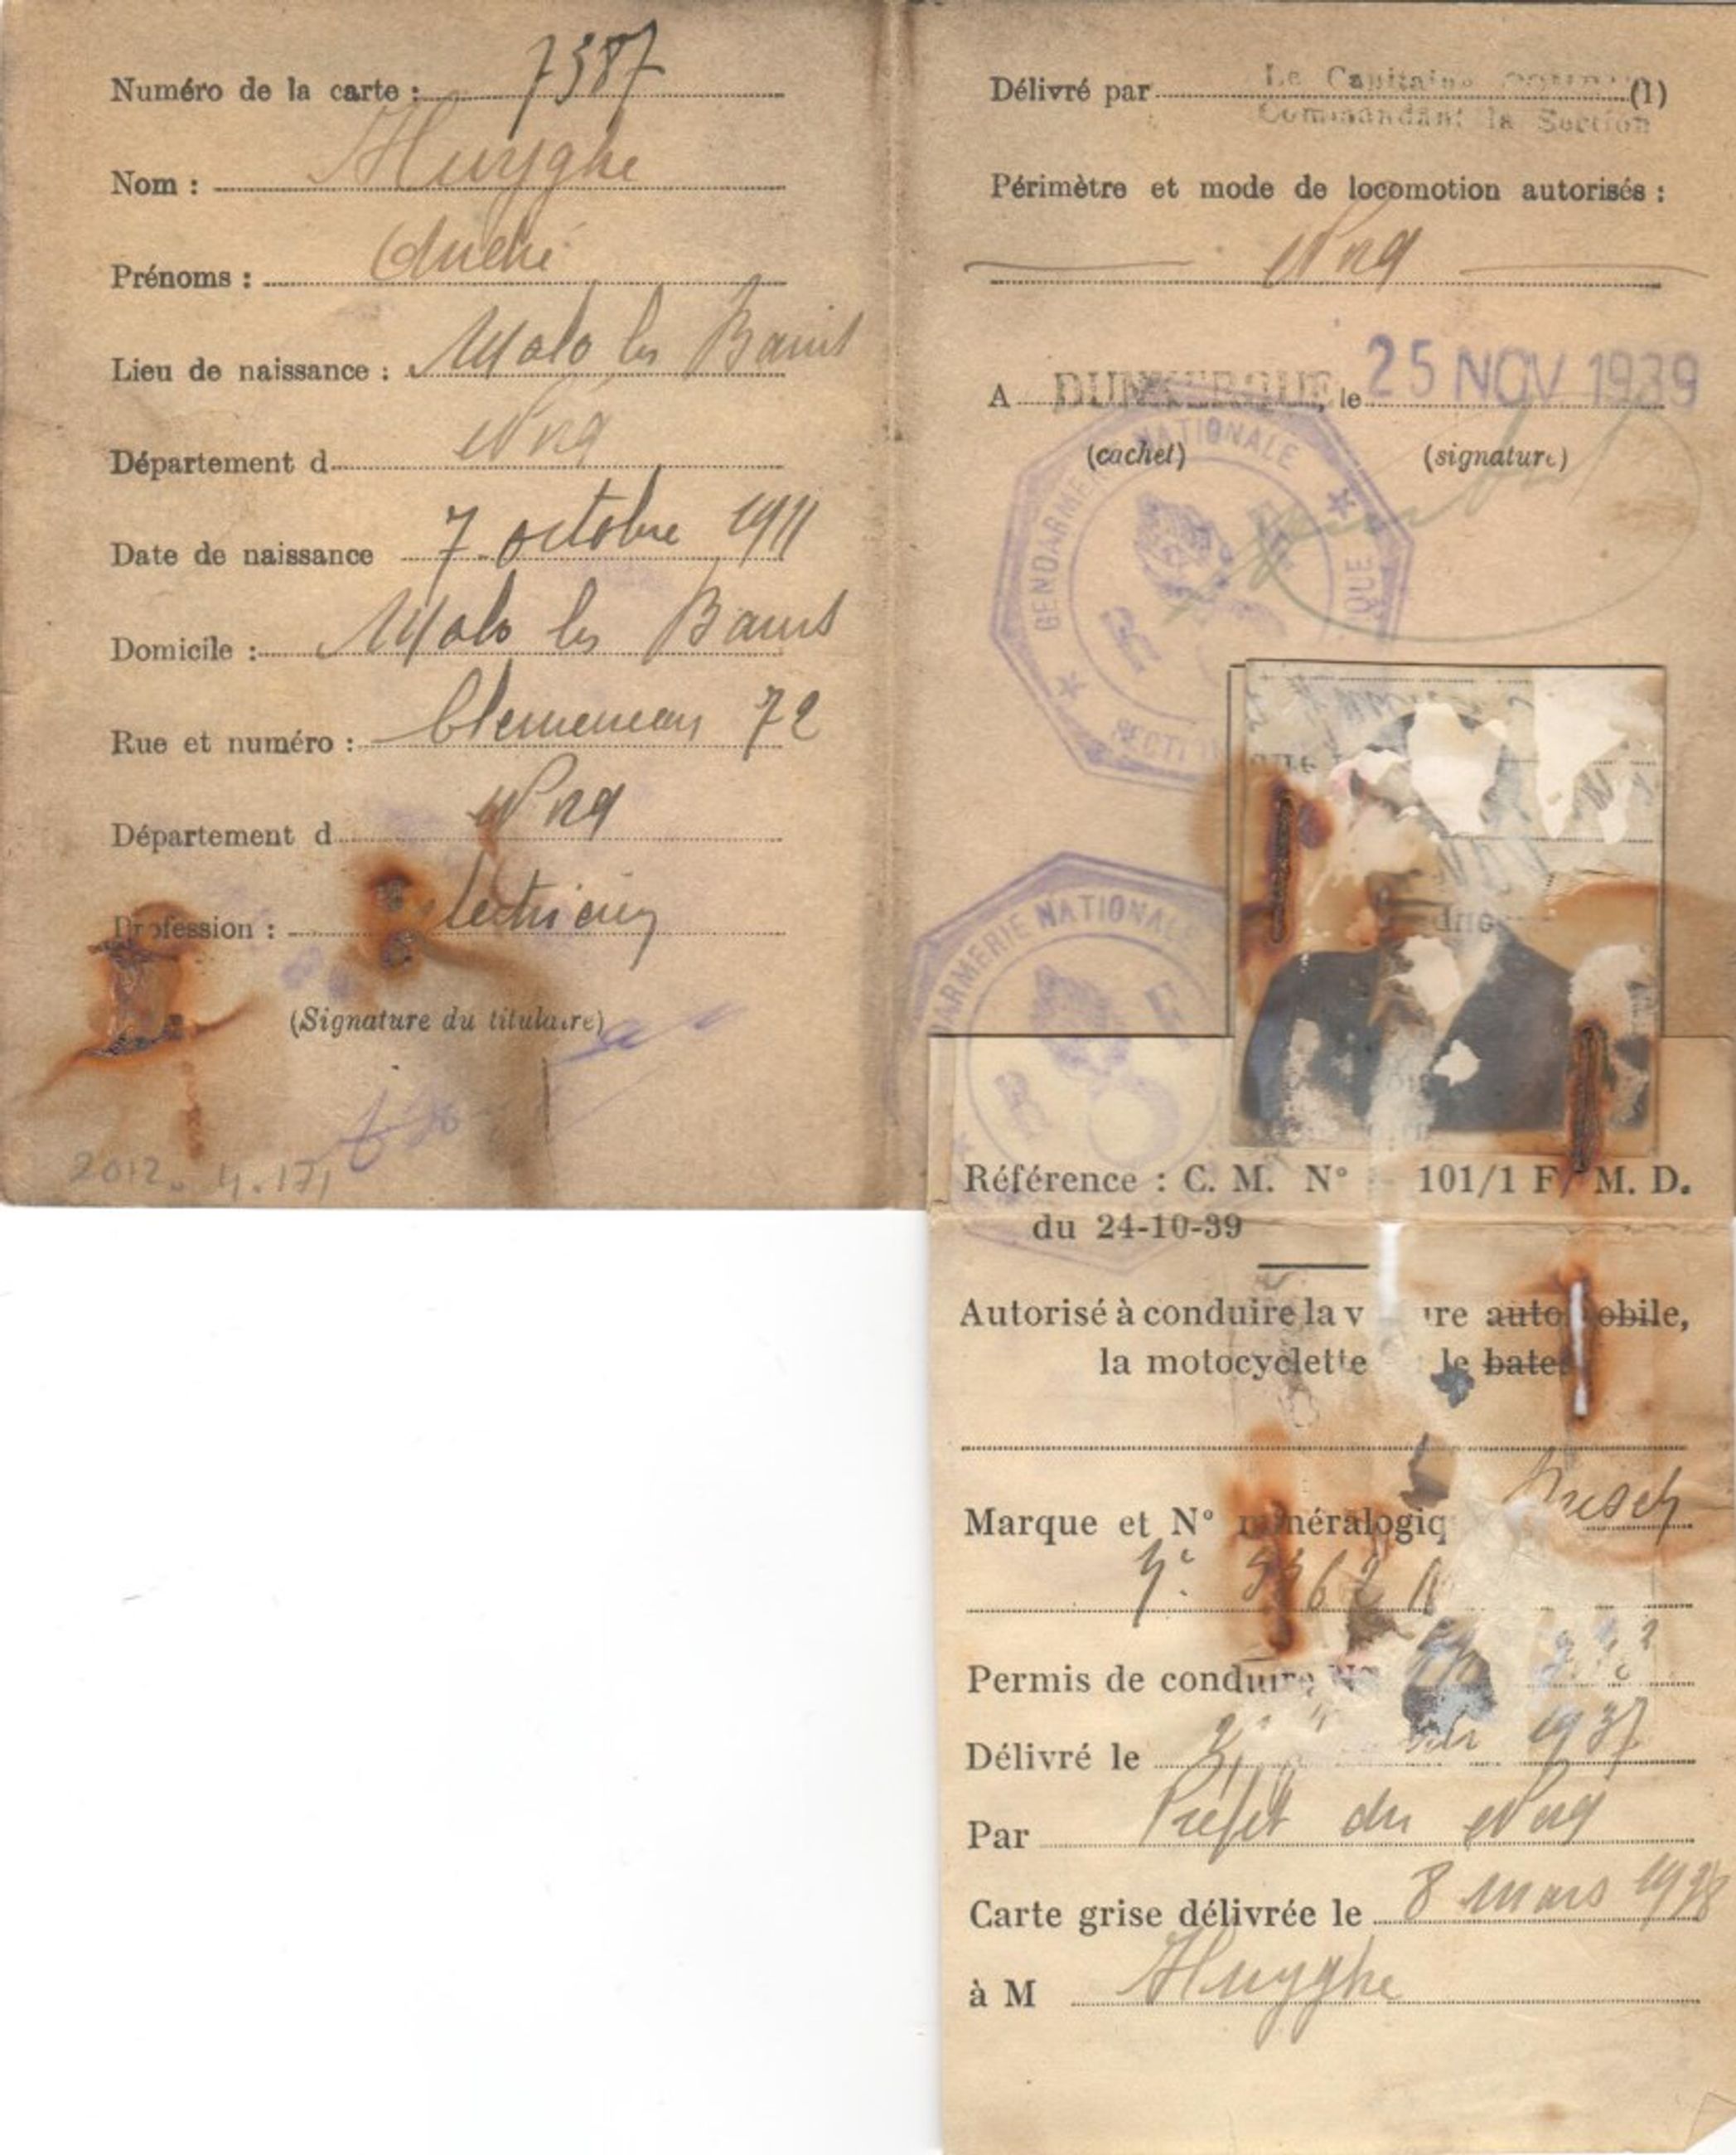 Numéro de la carte : 7387
Nom : Huyghe
Prénoms : André
Lieu de naissance : Malo les Bains
Département d Nord
Date de naissance 7 octobre 1911
Domicile : Malo les Bains
Rue et numéro : Clemenceau 72
Département d Nord
Profession : lectricien
(Signature du titulaire)
2012.4.171
Délivré par Le Capitaine (1)
Commandant la Section
Périmètre et mode de locomotion autorisés :
Nord
A DUNKERQUE, le 25 NOV 1939
(cachet) (signature)
GENDARMERIE NATIONALE
SECTION
R F
ARMERIE NATIONALE
R F
Référence : C. M. N° 101/1 F M. D.
du 24-10-39
Autorisé à conduire la v ure automobile,
la motocyclette le bate
Marque et N° minéralogiq
Permis de conduire N°
Délivré le 1937
Par Préfet du Nord
Carte grise délivrée le 8 mars 1938
à M Huyghe